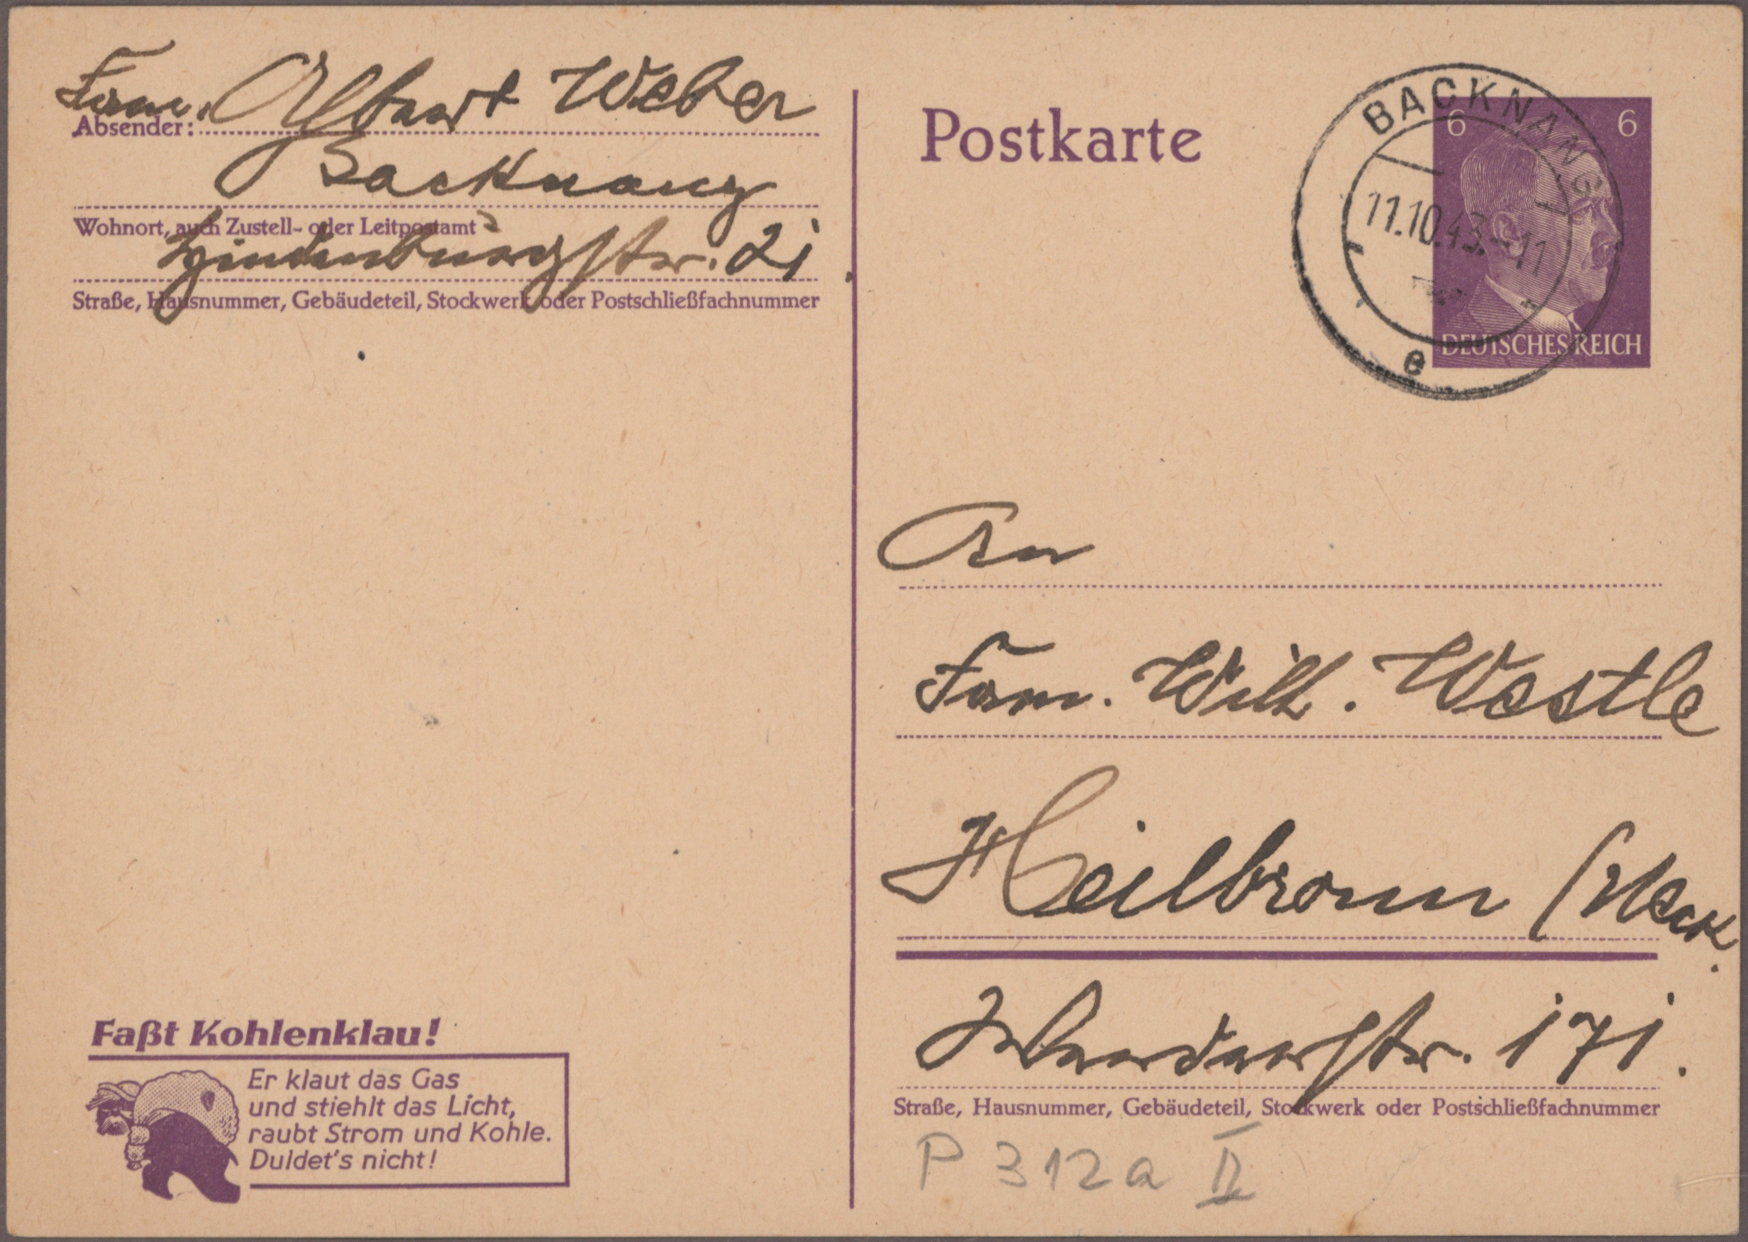 Fam. Albert Weber
Absender:
Backnang
Wohnort, auch Zustell- oder Leitpostamt
Hindenburgstr. 21.
Straße, Hausnummer, Gebäudeteil, Stockwerk oder Postschließfachnummer
Postkarte
BACKNANG
6 6
11.10.43.-11
e
DEUTSCHES REICH
An
Fam. Wilh. Westle
Heilbronn /Neck.
str. 171.
Straße, Hausnummer, Gebäudeteil, Stockwerk oder Postschließfachnummer
P 312a II
Faßt Kohlenklau!
Er klaut das Gas
und stiehlt das Licht,
raubt Strom und Kohle.
Duldet's nicht!